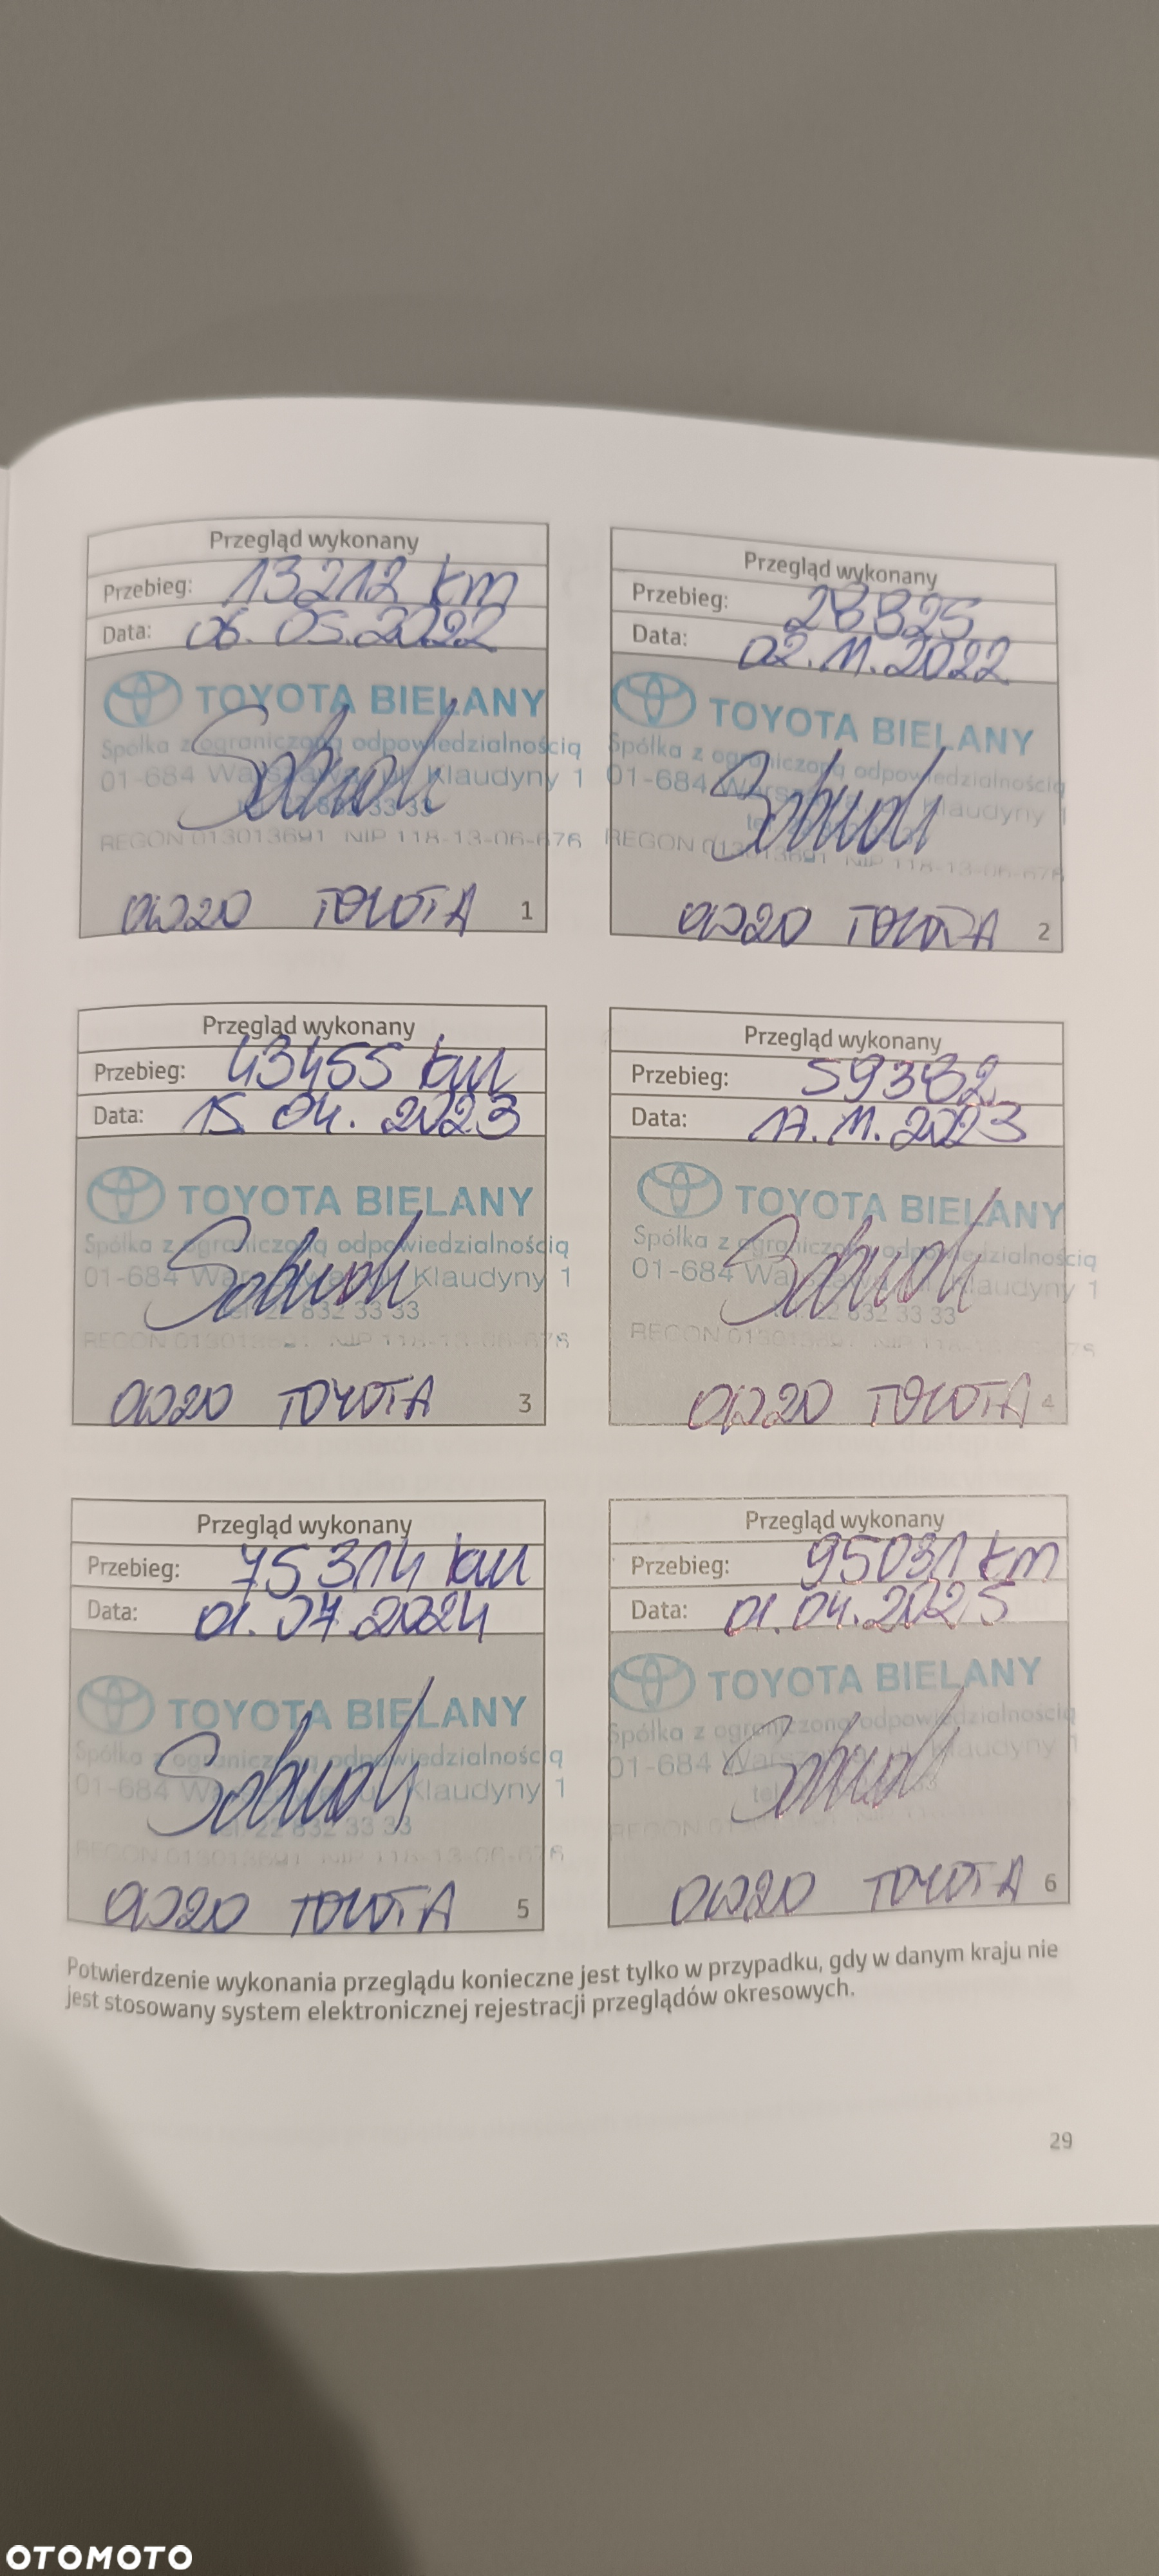 Przegląd wykonany
Przebieg: 13212 km
Data: 06.05.2022
TOYOTA BIELANY
Spółka z ograniczoną odpowiedzialnością
01-684 Warszawa, ul. Klaudyny 1
33 33
REGON 013013691 NIP 118-13-06-676
0W20 TOYOTA 1
Przegląd wykonany
Przebieg: 28825
Data: 02.11.2022
TOYOTA BIELANY
Spółka z ograniczoną odpowiedzialnością
01-684 Warszawa, ul. Klaudyny 1
REGON 013013691 NIP 118-13-06-676
0W20 TOYOTA 2
Przegląd wykonany
Przebieg: 43455 km
Data: 15.04.2023
TOYOTA BIELANY
Spółka z ograniczoną odpowiedzialnością
01-684 Warszawa, ul. Klaudyny 1
tel. 22 832 33 33
REGON 013013691 NIP 118-13-06-676
0W20 TOYOTA 3
Przegląd wykonany
Przebieg: 59382
Data: 17.11.2023
TOYOTA BIELANY
Spółka z ograniczoną odpowiedzialnością
01-684 Warszawa, ul. Klaudyny 1
tel. 22 832 33 33
REGON 013013691 NIP
0W20 TOYOTA 4
Przegląd wykonany
Przebieg: 75314 km
Data: 01.07.2024
TOYOTA BIELANY
Spółka z ograniczoną odpowiedzialnością
01-684 Warszawa, ul. Klaudyny 1
tel. 22 832 33 33
REGON 013013691 NIP 118-13-06-676
0W20 TOYOTA 5
Przegląd wykonany
Przebieg: 95031 km
Data: 01.04.2025
TOYOTA BIELANY
Spółka z ograniczoną odpowiedzialnością
01-684 Warszawa, ul. Klaudyny 1
tel.
REGON
0W20 TOYOTA 6
Potwierdzenie wykonania przeglądu konieczne jest tylko w przypadku, gdy w danym kraju nie
jest stosowany system elektronicznej rejestracji przeglądów okresowych.
29
OTOMOTO